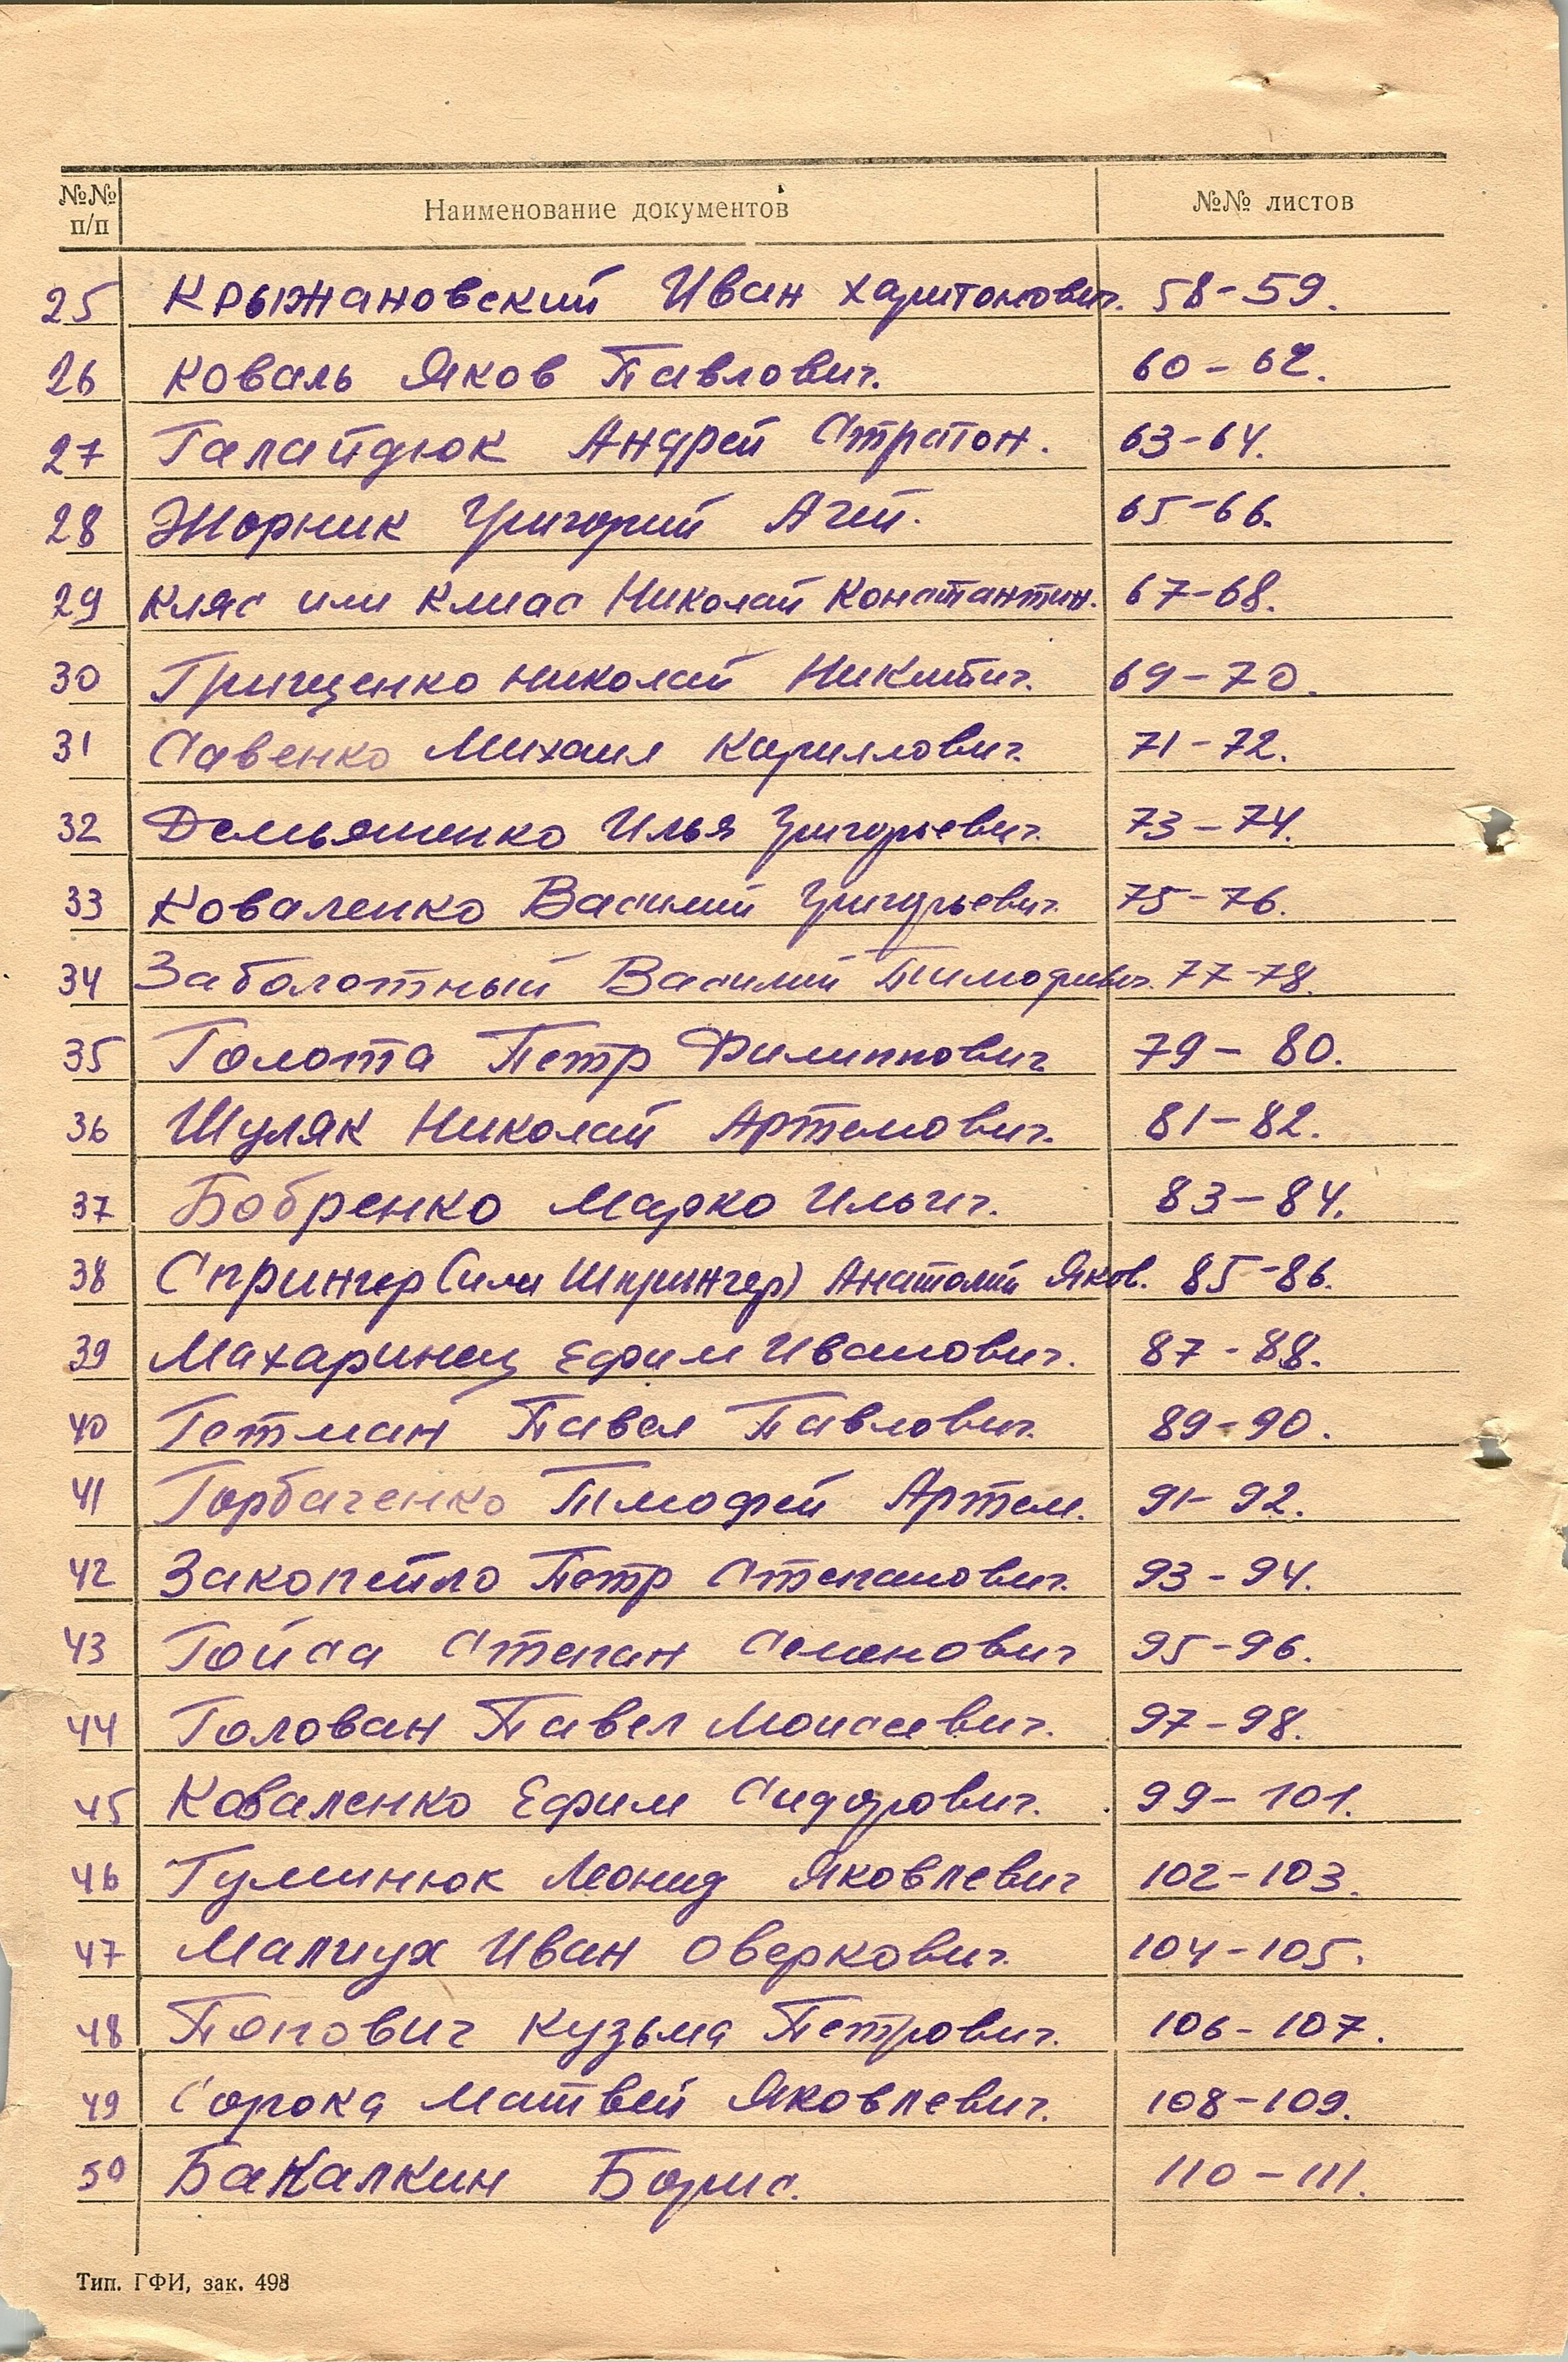 №№ п/п Наименование документов №№ листов
25 Крыжановский Иван Харитонович. 58-59.
26 Коваль Яков Павлович. 60-62.
27 Галайдюк Андрей Стратон. 63-64.
28 Жорник Григорий 65-66.
29 Кляс или Клиас Николай Константин. 67-68.
30 Грищенко Николай Никитич. 69-70.
31 Савенко Михаил Кириллович. 71-72.
32 Демьяненко Илья Григорьевич. 73-74.
33 Коваленко Василий Григорьевич. 75-76.
34 Заболотный Василий Тимофиевич. 77-78.
35 Голота Петр Филиппович 79-80.
36 Шуляк Николай Артемович. 81-82.
37 Бобренко Марко Ильич. 83-84.
38 Спрингер (или Шпрингер) Анатолий Яков. 85-86.
39 Махаринец Ефим Иванович. 87-88.
40 Гетман Павел Павлович. 89-90.
41 Горбаченко Тимофей Артем. 91-92.
42 Закопейло Петр Степанович. 93-94.
43 Гойса Степан Семенович 95-96.
44 Голован Павел Моисеевич. 97-98.
45 Коваленко Ефим Сидорович. 99-101.
46 Гуминюк Леонид Яковлевич 102-103.
47 Иван Оверкович. 104-105.
48 Попович Кузьма Петрович. 106-107.
49 Сорока Матвей Яковлевич. 108-109.
50 Бакалкин Борис. 110-111.
Тип. ГФИ, зак. 498